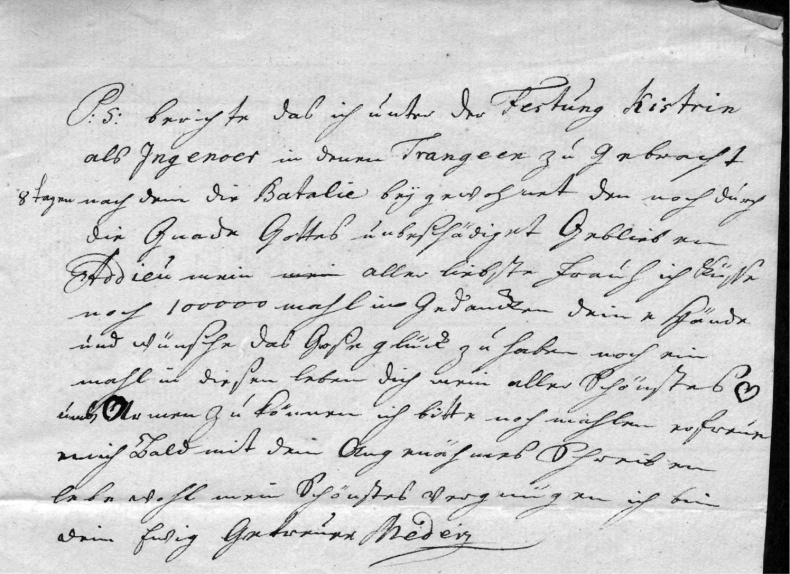 P: S: berichte das ich unter der Festung Kistrin
als Ingenoer in denen Trangeen zu Gebracht
8 tagen nach dem die Batalie bey gewohnet den noch durch
die Gnade Gottes unbeschädiget Geblieben
Addieu mein mein aller liebste Frau ich Küsse
noch 100000 mahl in Gedancken deine Hände
und wünsche das Gose glück zu haben noch ein
mahl in diesen leben dich mein aller Schönstes ♥
umb Armen zu können ich bitte noch mahlen erfreue
mich Bald mit dein Angenähmes Schreiben
lebe wohl mein Schönstes Vergnügen ich bin
dein Ewig Getreuer